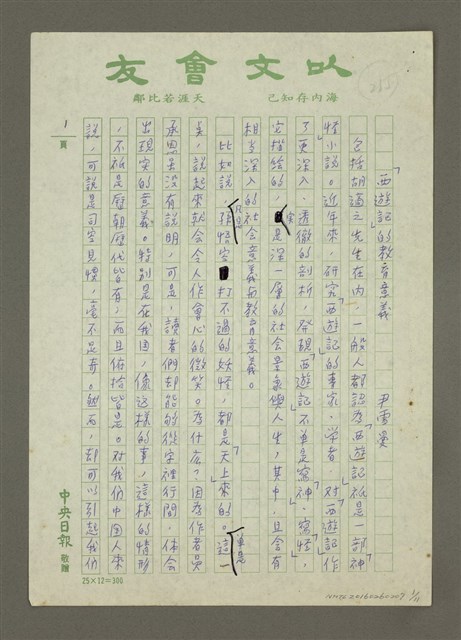 以文會友
海內存知己 天涯若比鄰
「西遊記」的教育意義 尹雪曼
包括胡適之先生在內,一般人都認為「西遊記」祇是一部神
怪小說。近年來,研究「西遊記」的專家、學者,對「西遊記」作
了更深入、透徹的剖析,發現「西遊記」不單是寫「神」、寫「怪」,
它描繪的,實是深一層的社會景象與人生,其中,且含有
相當深入的社會意義和教育意義。
比如說,孫悟空打不過的妖怪,都是「天上來的」。這一
點,說起來就會令人作會心的微笑。為什麼?因為作者吳
承恩並沒有說明,可是,讀者們卻能夠從字裡行間,体會
出現實的意義。特別是在我國,像這樣的事,這樣的情形
,不祇是歷朝歷代皆有,而且俯拾皆是。對我們中國人來
說,可說是司空見慣,毫不足奇。然而,卻可以引起我們
1
頁
中央日報 敬贈
25×12=300